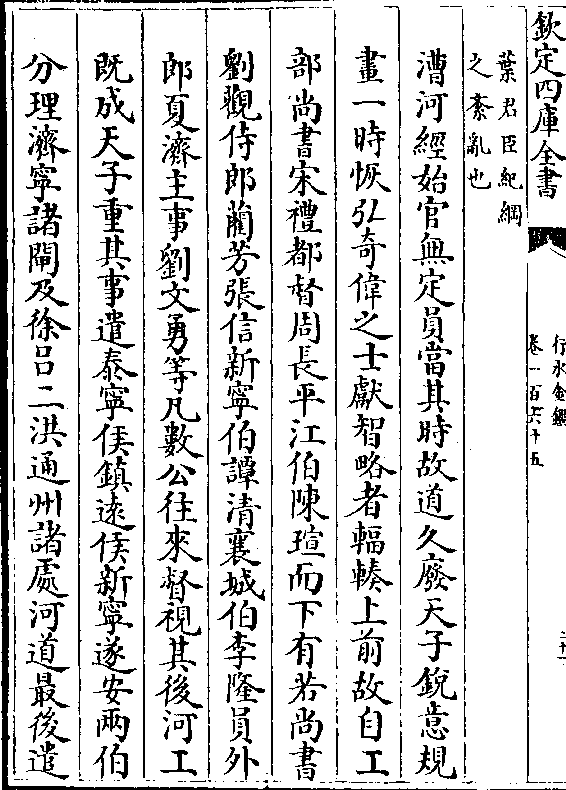 欽定四庫全書
行水金鑑
卷一百六十五
葉君臣紀綱
之紊亂也
漕河經始官無定員當其時故道久廢天子銳意規
畫一時恢弘奇偉之士獻智略者輻輳上前故自工
部尚書宋禮都督周長平江伯陳瑄而下有若尚書
劉觀侍郎藺芳張信新寧伯譚清襄城伯李隆員外
郎夏濟主事劉文勇等凡數公往來督視其後河工
既成天子重其事遣泰寧侯鎮遠侯新寧遂安兩伯
分理濟寧諸閘及徐吕二洪通州諸處河道最後遣